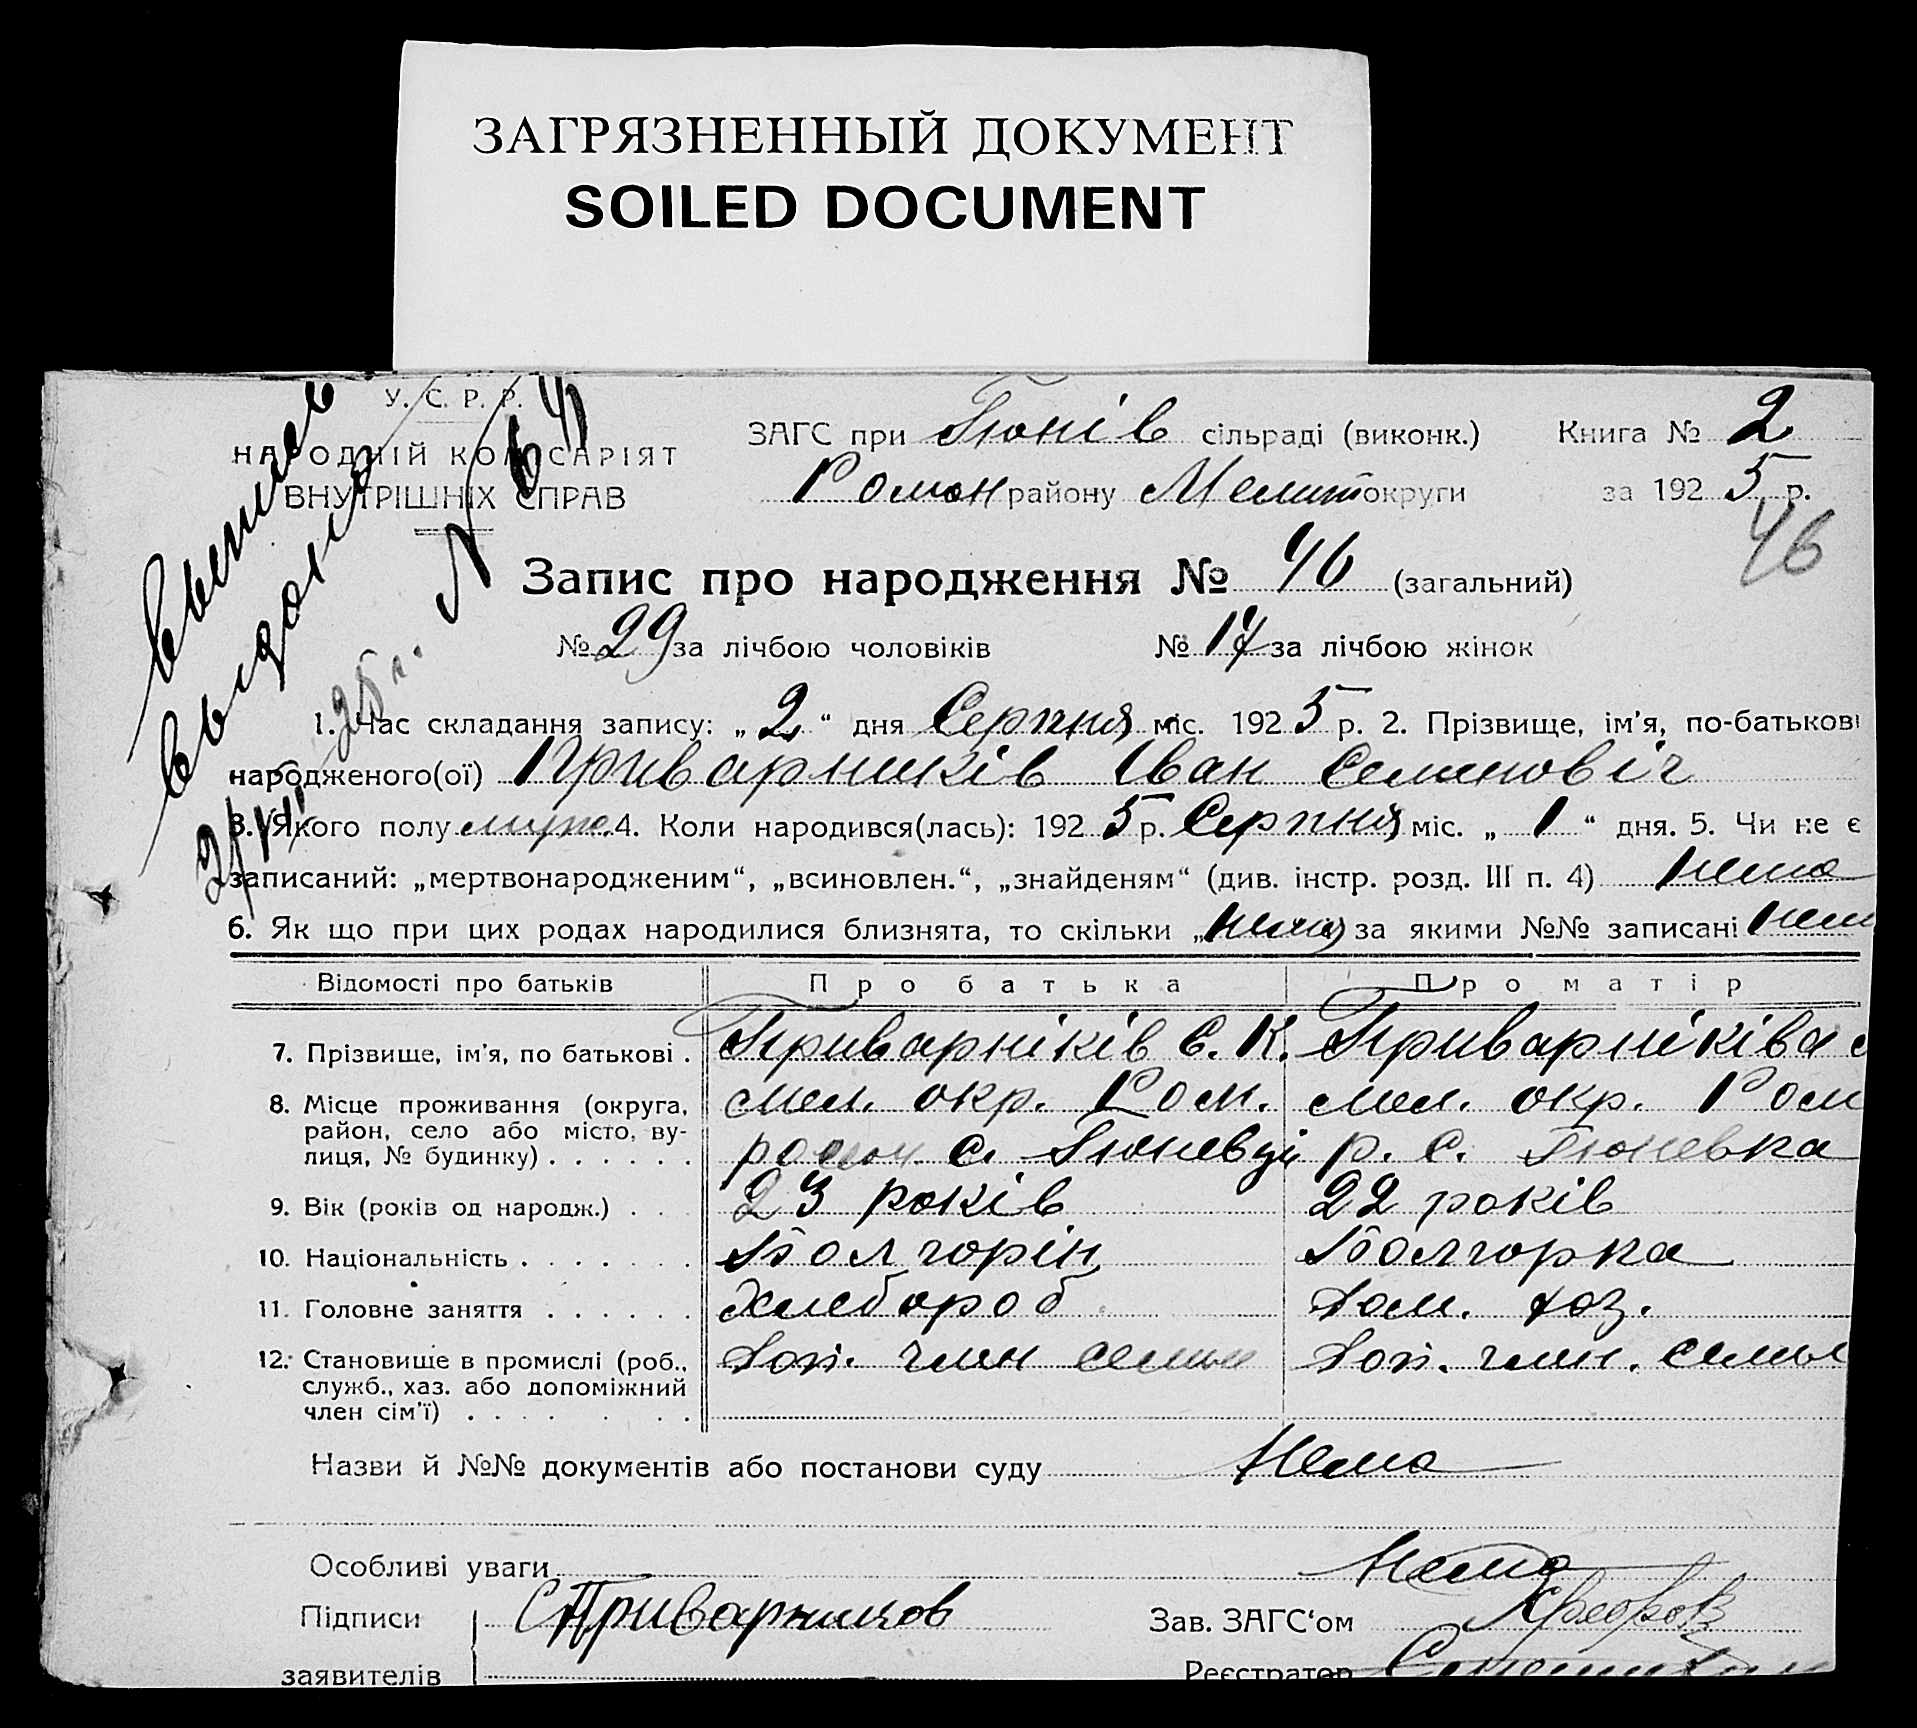 ЗАГРЯЗНЕННЫЙ ДОКУМЕНТ
SOILED DOCUMENT
У. С. Р. Р.
НАРОДНІЙ КОМІСАРІЯТ
ВНУТРІШНІХ СПРАВ
ЗАГС при Гюнів сільраді (виконк.)
Книга № 2
Ромон району Мелит округи
за 1925 р.
46
выдана
Запис про народження № 46 (загальний)
№ 29 за лічбою чоловіків № 17 за лічбою жінок
1. Час складання запису: „2“ дня Серпня міс. 1925 р. 2. Прізвище, ім’я, по-батькові
народженого(ої) Приварників Іван Семиновіч
3. Якого полу муж. 4. Коли народився(лась): 1925 р. Серпня міс. „1“ дня. 5. Чи не є
записаний: „мертвонародженим“, „всиновлен.“, „знайденям“ (див. інстр. розд. III п. 4) нема
6. Як що при цих родах народилися близнята, то скільки „нема за якими №№ записані нем
Відомості про батьків Про батька Про матір
7. Прізвище, ім’я, по батькові . Приварніків С. К. Приварніківа
8. Місце проживання (округа, мел. окр. Ром. мел. окр. Ром
район, село або місто, ву-
лиця, № будинку) . . . . . . район с. Гюневці р. с. Гюневка
9. Вік (років од народж.) . . . 23 років 22 років
10. Національність . . . . . . . Болгорін Болгорка
11. Головне заняття . . . . . . Хлебороб Дом. хоз.
12. Становище в промислі (роб., Доп. член семьи Доп. член. семьи
служб., хаз. або допоміжний
член сім’ї) . . . . . . .
Назви й №№ документів або постанови суду Нема
Особливі уваги Нема
Підписи С Приварников Зав. ЗАГС‘ом
заявителів Реєстратор